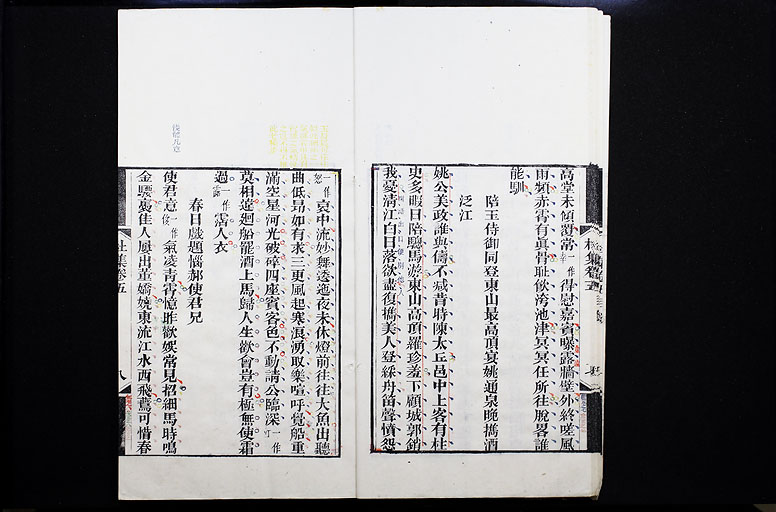 高堂未傾覆常一作幸得慰嘉賓曝露牆壁外終嗟風
雨頻赤霄有真骨恥飲洿池津冥冥任所往脫畧誰
能馴
陪王侍御同登東山最高頂宴姚通泉晚攜酒
泛江
姚公美政誰與儔不減昔時陳太丘邑中上客有柱
史多暇日陪驄馬遊東山高頂羅珍羞下顧城郭銷
我憂清江白日落欲盡復攜美人登綵舟笛聲憤怨
一作怒哀中流妙舞逶迤夜未休燈前往往大魚出聽
曲低昂如有求三更風起寒浪湧取樂喧呼覺船重
滿空星河光破碎四座賓客色不動請公臨深一作
莫相違迴船罷酒上馬歸人生歡會豈有極無使霜
過一作霑人衣
春日戲題惱郝使君兄
使君意一作氣凌青霄憶昨歡娛常見招細馬時鳴
金騕褭佳人屢出董嬌嬈東流江水西飛鷰可惜春
杜集卷五
八